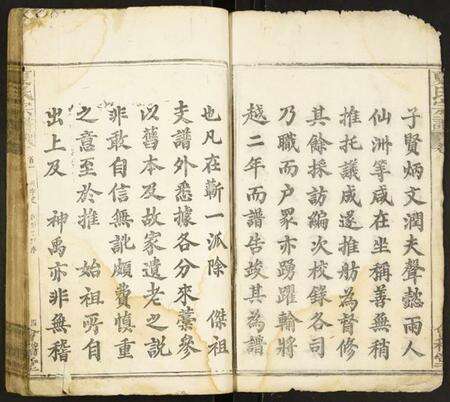 子賢炳文潤夫聲懿雨人
仙洲等咸在坐稱善無稍
推托議成遂推舫為督修
其餘採訪編次校錄各司
乃職而户眾亦踴躍輸將
越二年而譜告竣其為譜
也凡在蘄一派除　傑祖
支譜外悉據各分來藁參
以舊本及故家遺老之說
非敢自信無訛頗費慎重
之意至於推　始祖所自
出上及　神禹亦非無稽